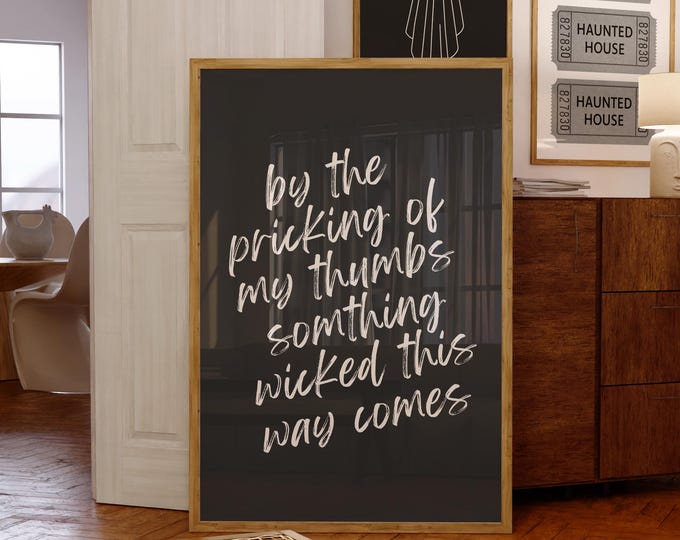 by the
pricking of
my thumbs
somthing
wicked this
way comes
827830
HAUNTED
HOUSE
827830
827830
HAUNTED
HOUSE
827830